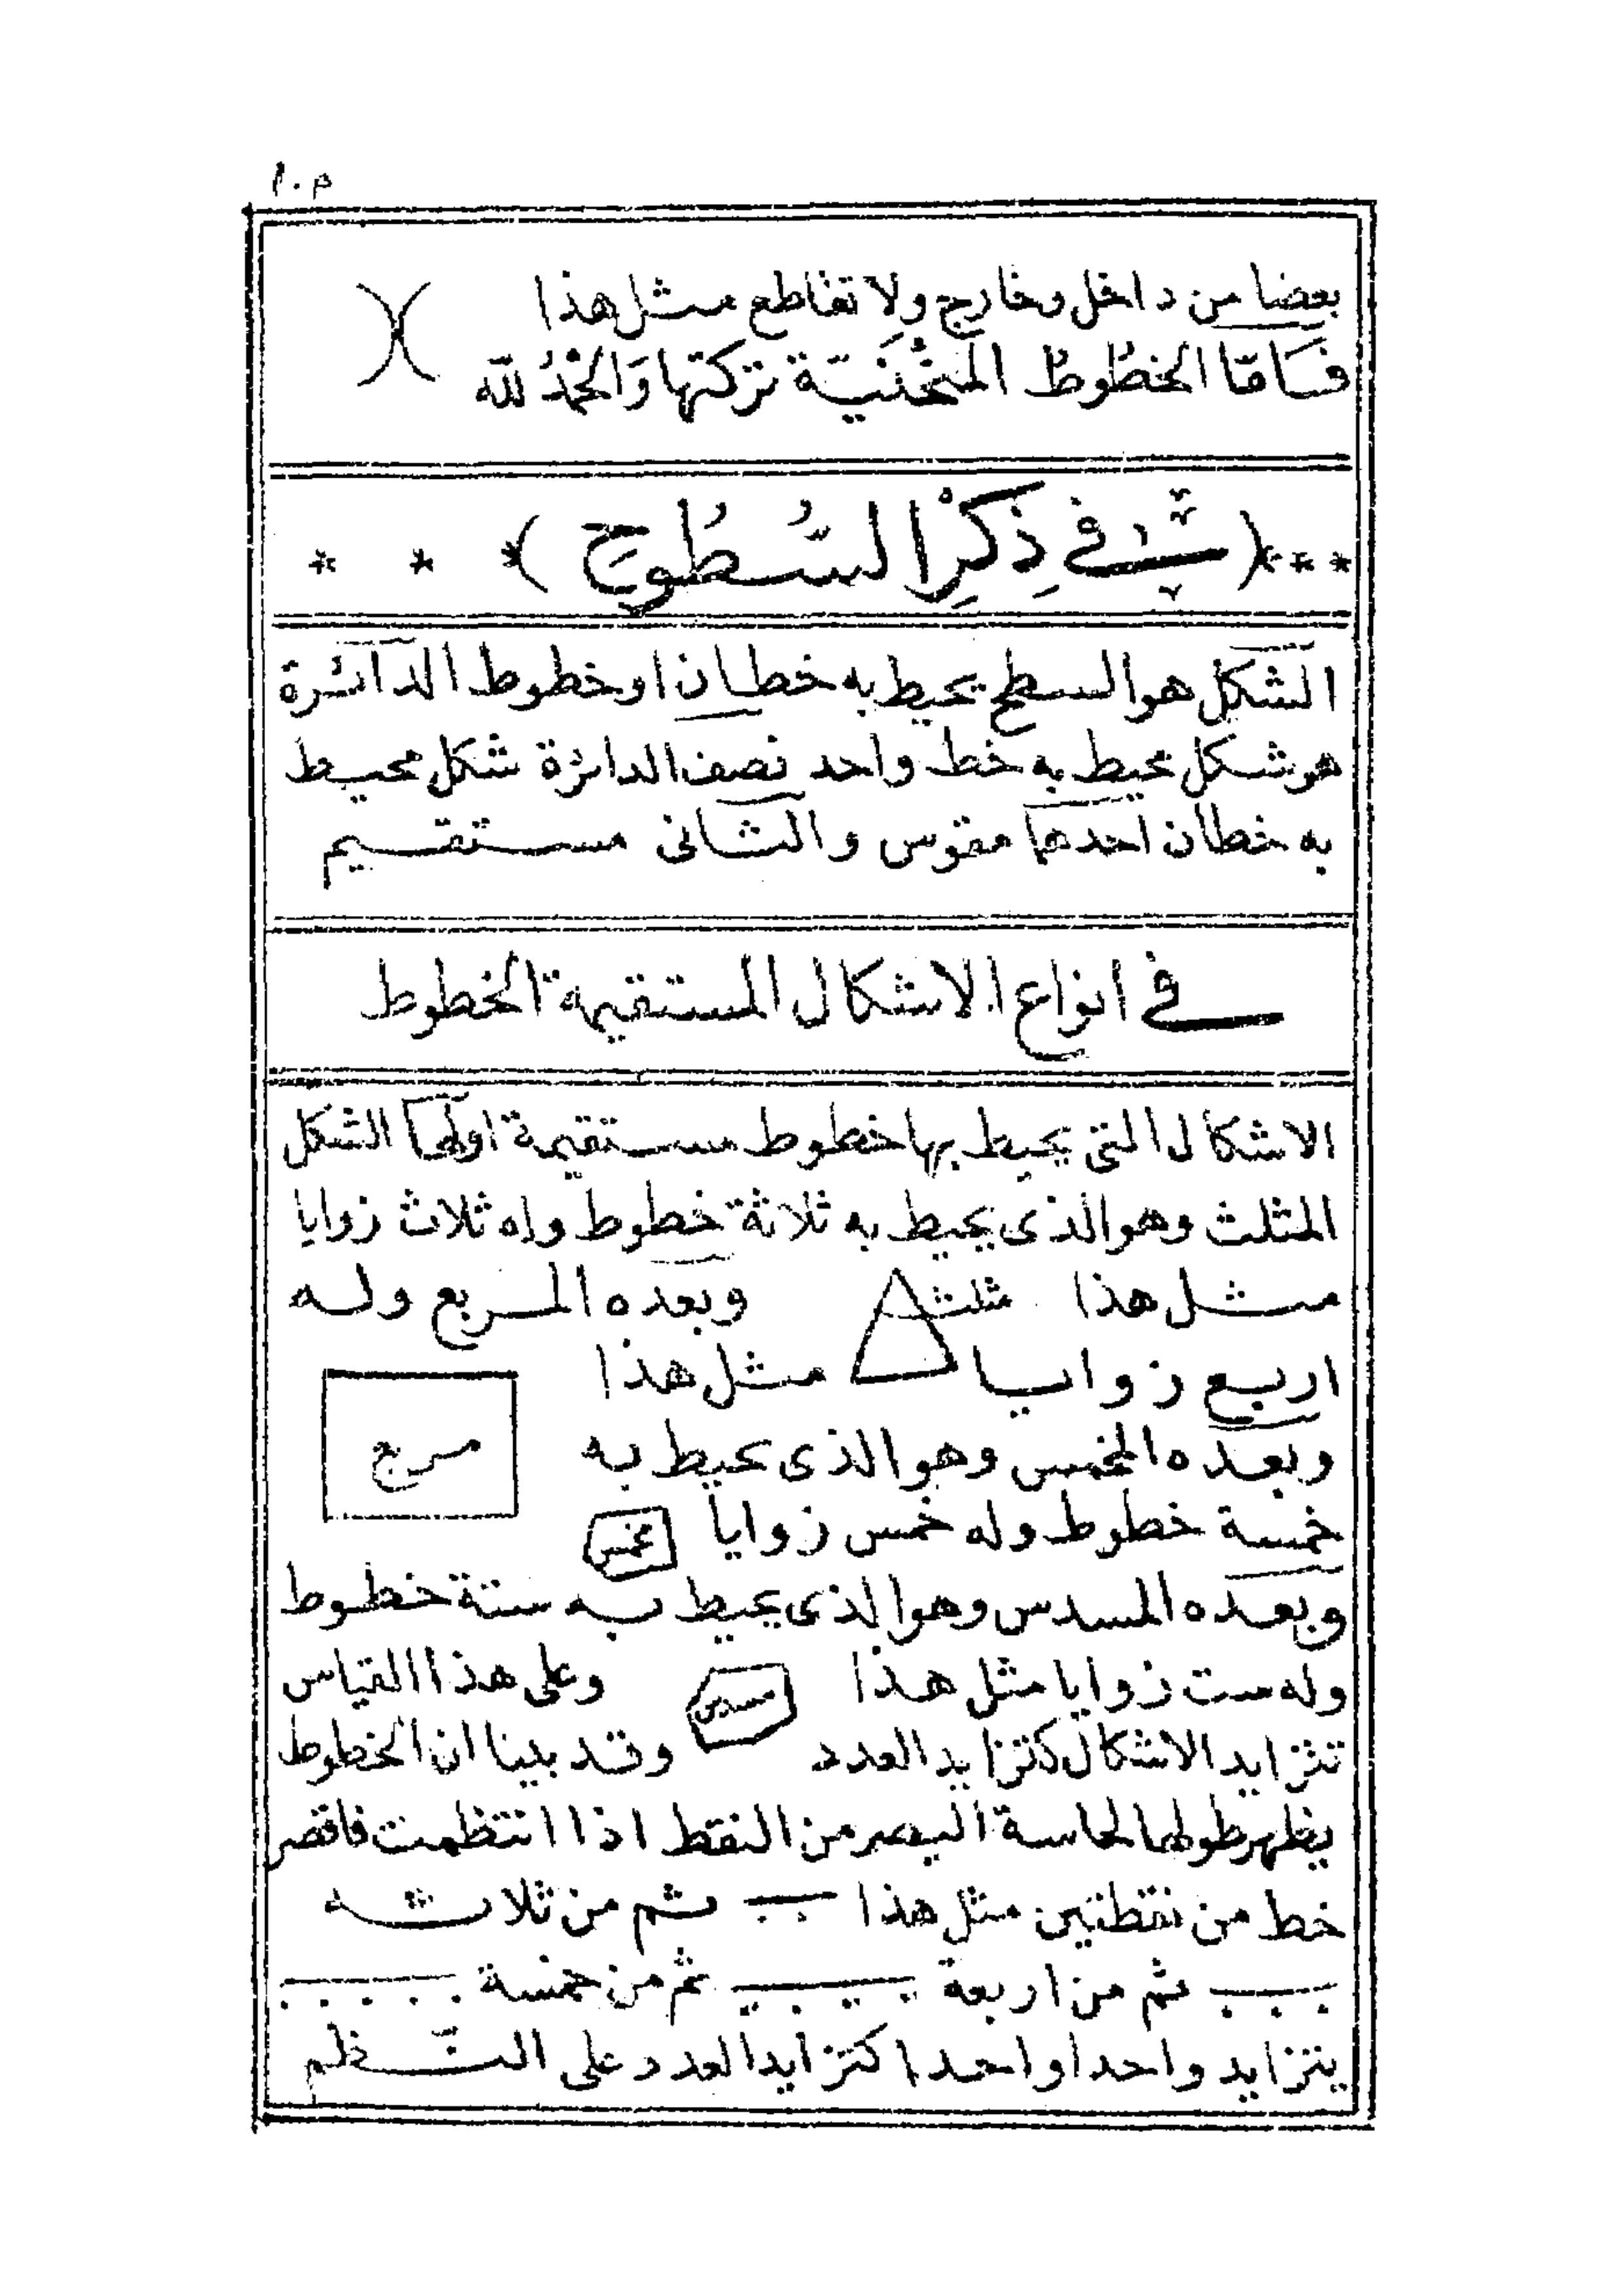 م ١٠
بعضا من داخل وخارج ولا تقاطع مثل هذا
فَامّا الخطُوطُ المنْحَنَيّة تركتها وَالحمْدُ لله
*** ( في ذِكرْ السُّطُوحِ ) * * *
الشكل هو السطح يحيط به خطان او خطوط الدائرة
هو شكل يحيط به خط واحد نصف الدائرة شكل محيط
به خطان احدهما مقوس والثانى مستقيم
فى انواع الاشكال المستقيمة الخطوط
الاشكال التى يحيط بها خطوط مستقيمة اولها الشكل
المثلث وهو الذى يحيط به ثلاثة خطوط وله ثلاث زوايا
مثل هذا مثلث وبعده المربع وله
اربع زوايا مثل هذا
مربع
وبعده المخمس وهو الذى يحيط به
خمسة خطوط وله خمس زوايا مخمس
وبعده المسدس وهو الذى يحيط به ستة خطوط
وله ست زوايا مثل هذا مسدس وعلى هذا القياس
تتزايد الاشكال كتزايد العدد وقد بينا ان الخطوط
يظهر طولها لحاسة البصر من النقط اذا انتظمت فاقصر
خط من نقطتين مثل هذا ثم من ثلاثه
ثم من اربعة ثم من خمسة
يتزايد واحدا واحدا كتزايد العدد على النّظم